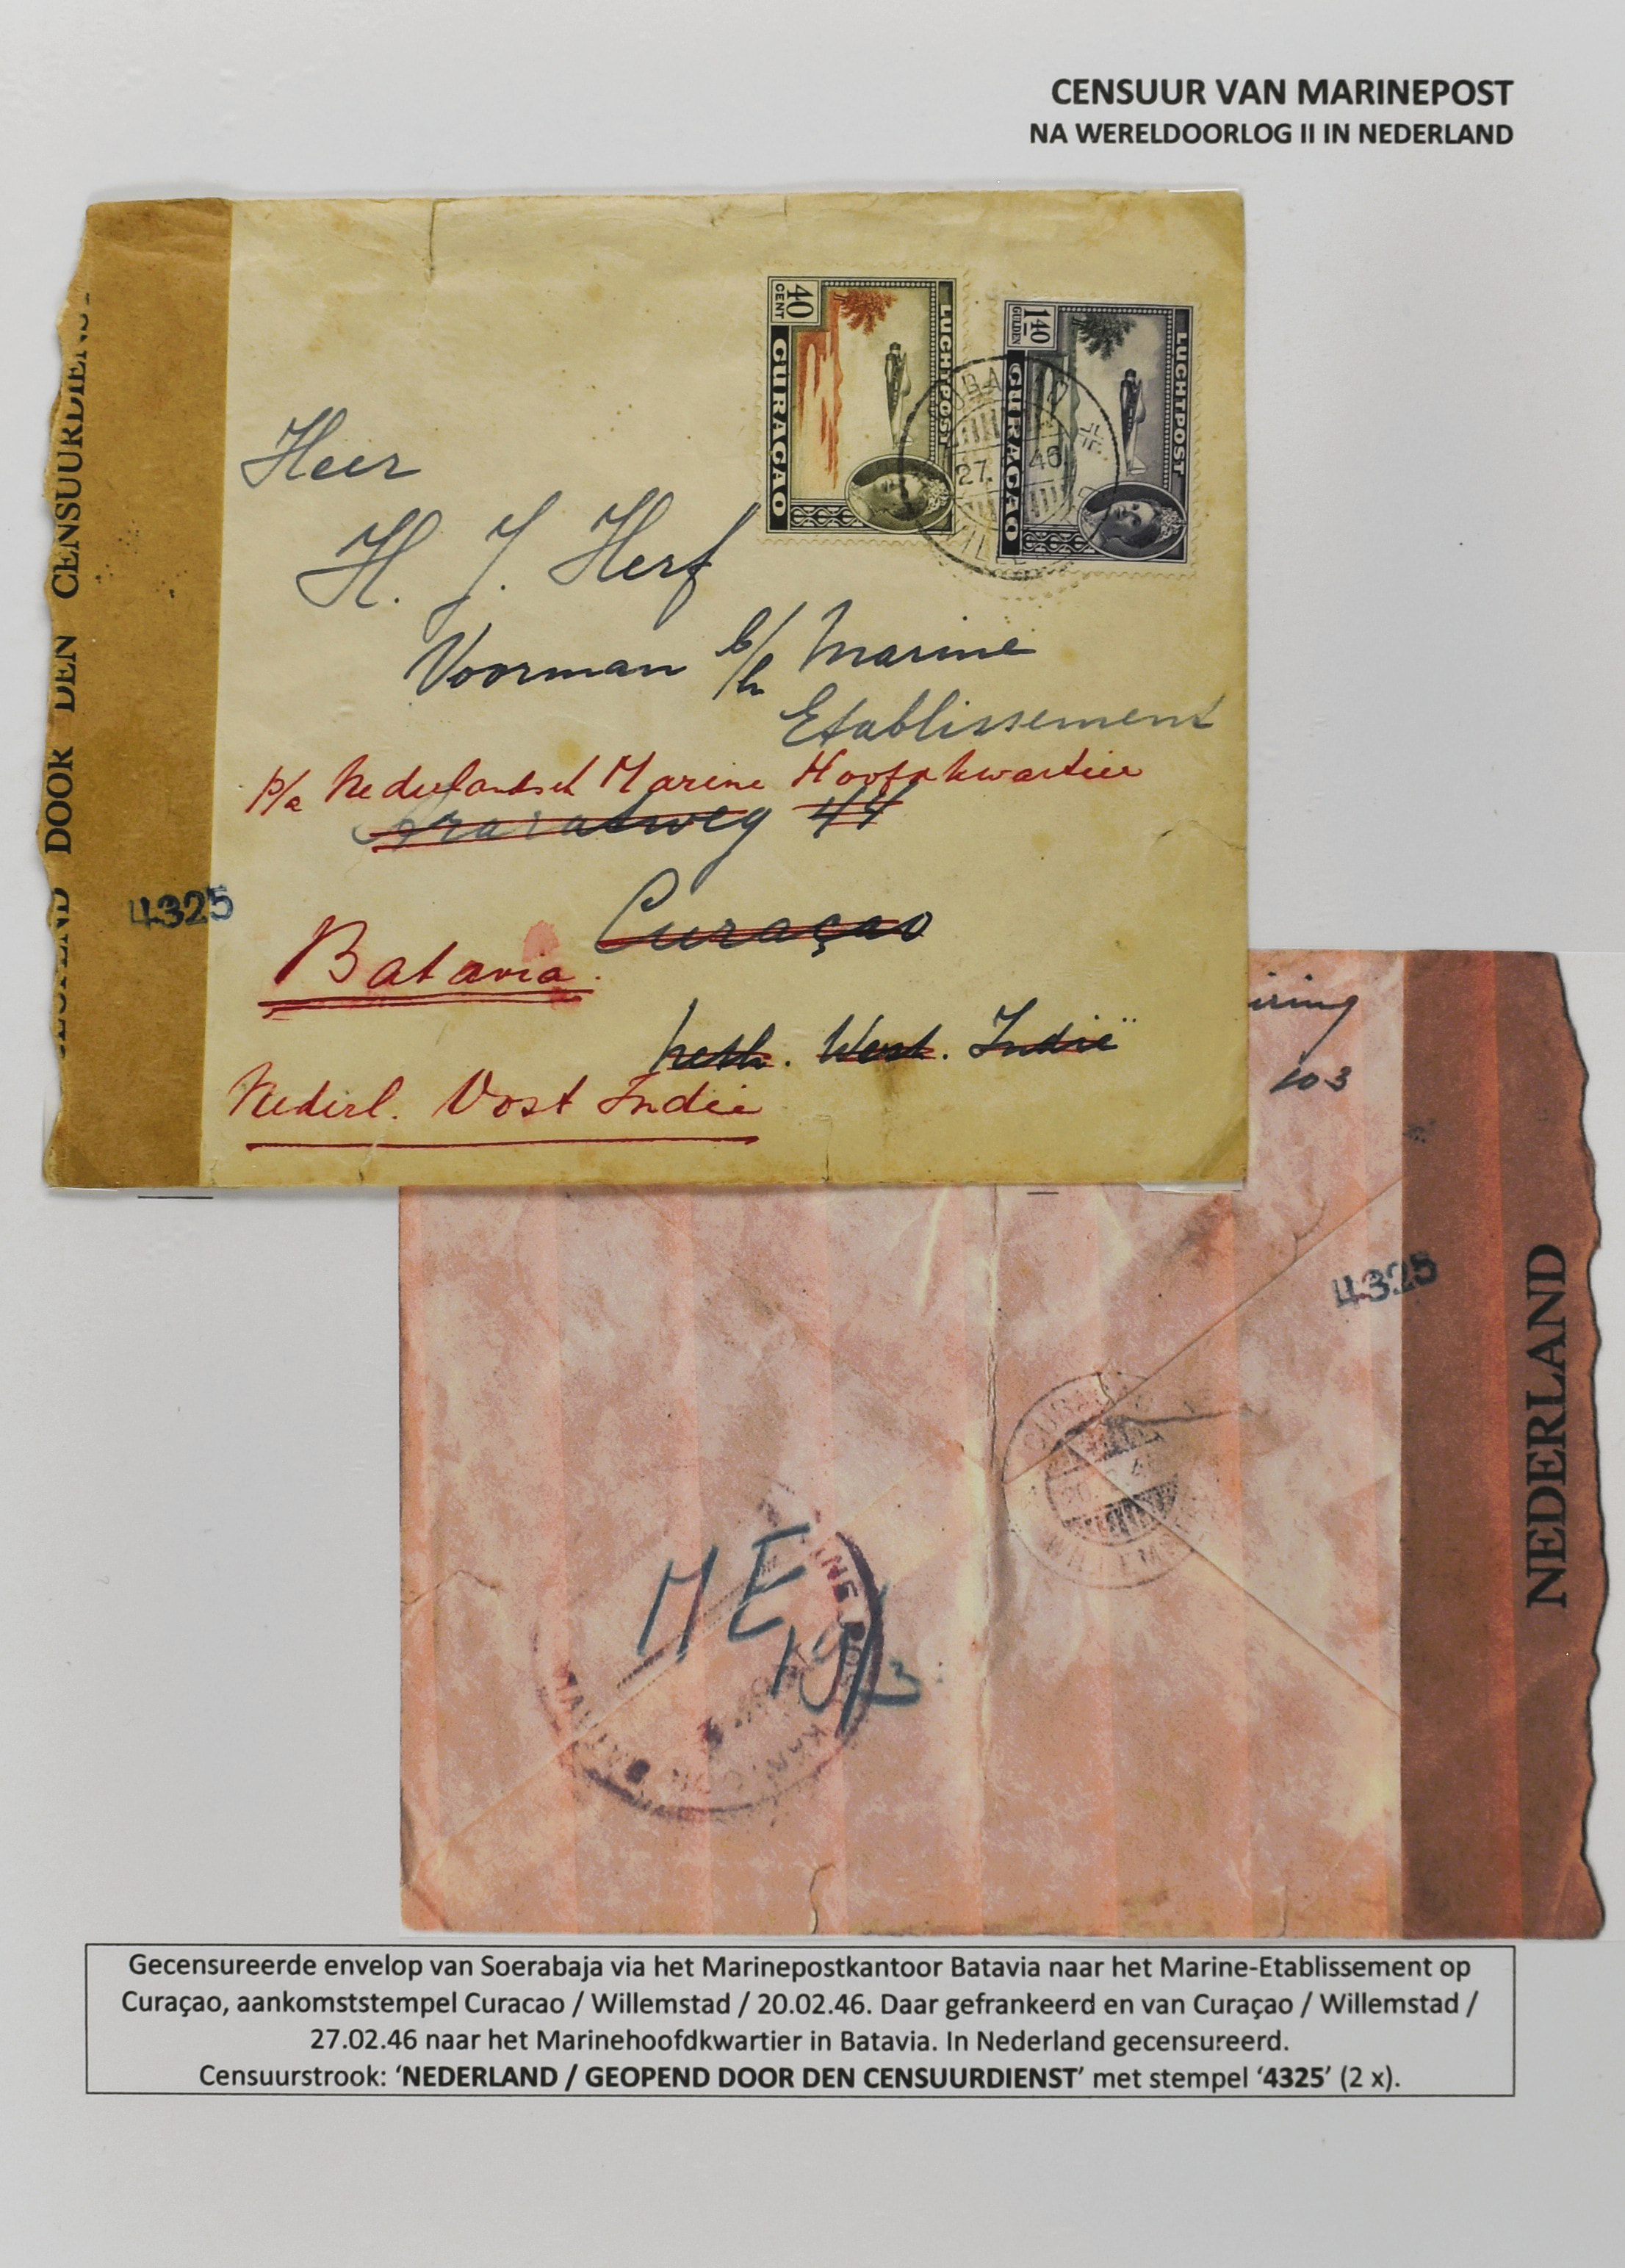 CENSUUR VAN MARINEPOST
NA WERELDOORLOG II IN NEDERLAND
GEOPEND DOOR DEN CENSUURDIENST
4325
40
CENT
LUCHTPOST
CURAÇAO
1.40
GULDEN
LUCHTPOST
CURAÇAO
27. 46
Heer
H. J. Herf
Voorman b/h Marine
Etablissement
p/a Nederlandsch Marine Hoofdkwartier
44
Curaçao
Batavia.
Neth. West. Indië
Nederl. Oost Indie
103
4325
NEDERLAND
CURA
20. 46
WILLEMS
ME
19/3
KANTOOR
BATAVIA
Gecensureerde envelop van Soerabaja via het Marinepostkantoor Batavia naar het Marine-Etablissement op
Curaçao, aankomststempel Curacao / Willemstad / 20.02.46. Daar gefrankeerd en van Curaçao / Willemstad /
27.02.46 naar het Marinehoofdkwartier in Batavia. In Nederland gecensureerd.
Censuurstrook: ‘NEDERLAND / GEOPEND DOOR DEN CENSUURDIENST’ met stempel ‘4325’ (2 x).